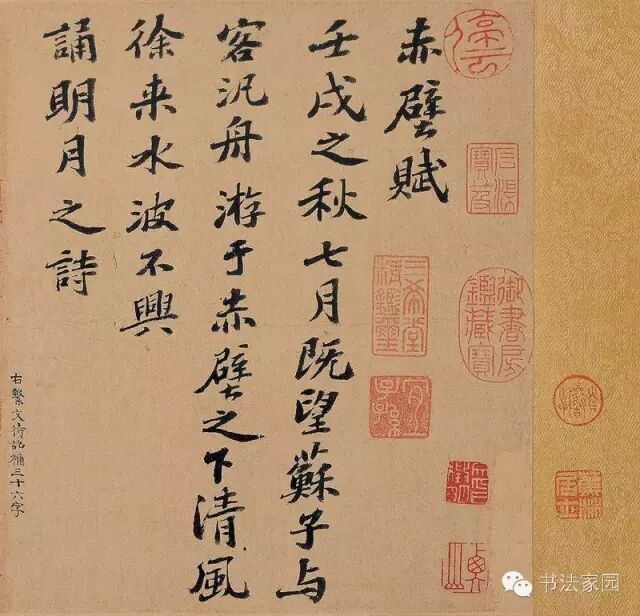 赤壁賦
壬戌之秋七月既望蘇子与
客汎舟游于赤壁之下清風
徐来水波不興
誦明月之詩
右繫文待詔補三十六字
御書房鑑藏寶
三希堂精鑑璽
宜子孫
书法家园